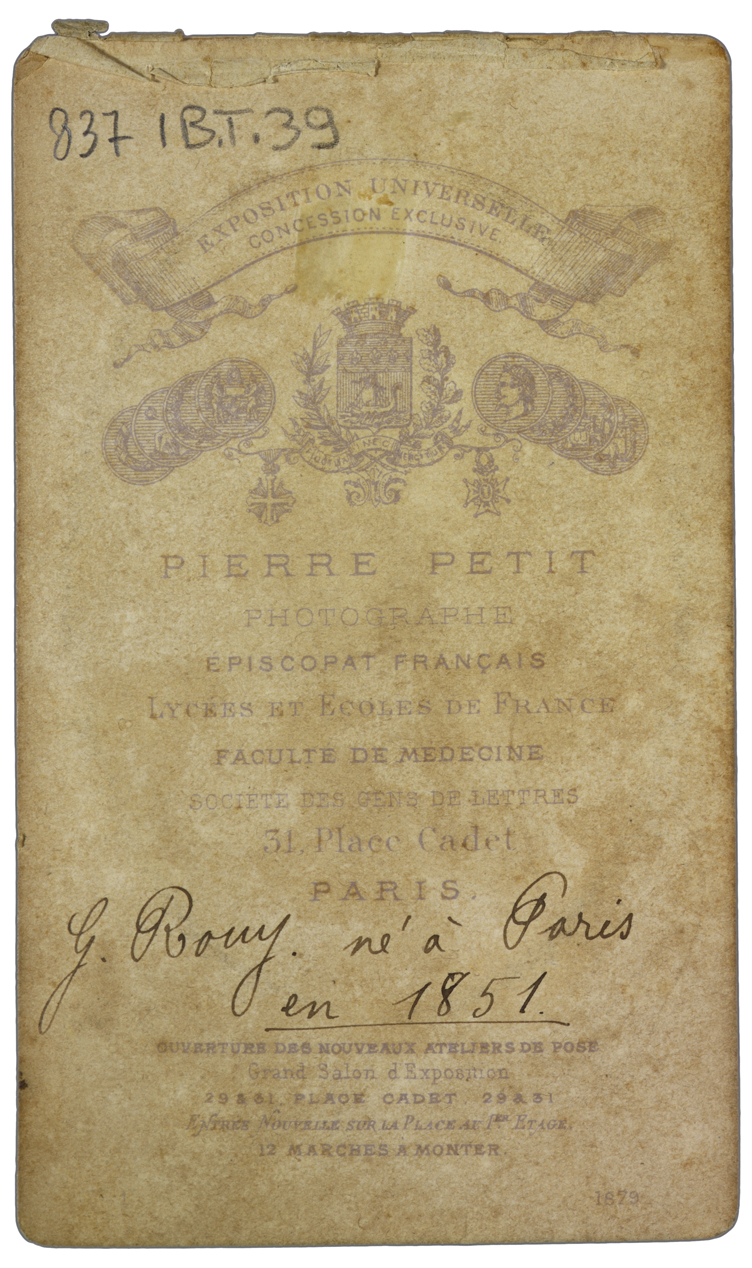 837 I B.T. 39
EXPOSITION UNIVERSELLE
CONCESSION EXCLUSIVE
PIERRE PETIT
PHOTOGRAPHE
ÉPISCOPAT FRANÇAIS
LYCÉES ET ECOLES DE FRANCE
FACULTÉ DE MEDECINE
SOCIÉTÉ DES GENS DE LETTRES
31, Place Cadet
PARIS.
G. Rouy. né à Paris
en 1851.
OUVERTURE DES NOUVEAUX ATELIERS DE POSE
Grand Salon d'Exposition
29 & 31, PLACE CADET 29 & 31
ENTRÉE NOUVELLE SUR LA PLACE AU 1ER ETAGE.
12 MARCHES A MONTER.
1879